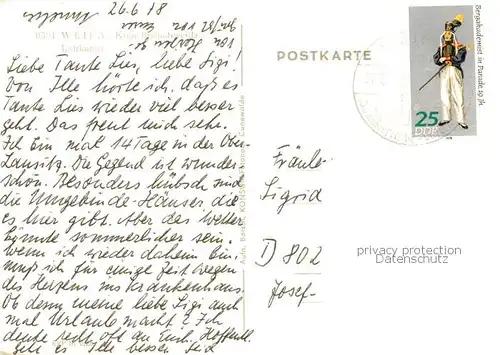 26.6.78
POSTKARTE
Bergakademist in Parade, 19. Jh.
25
DDR
Liebe Tante Lies, liebe Sigi!
Von Ille hörte ich, daß es
Tante Lies wieder viel besser
geht. Das freut mich sehr.
Ich bin mal 14 Tage in der Ober
Lausitz. Die Gegend ist wunder
schön. Besonders hübsch sind
die Umgebinde-Häuser, die
es hier gibt. Aber das Wetter
könnte sommerlicher sein.
Wenn ich wieder daheim bin,
muß ich für einige Zeit wegen
des Herzens ins Krankenhaus.
Ob denn meine liebe Sigi auch
mal Urlaub macht? Ich
denke recht oft an Euch. Hoffentl.
geht es Ille besser. Seid
Fräulein
Sigrid
D 802
Josef-
privacy protection
Datenschutz